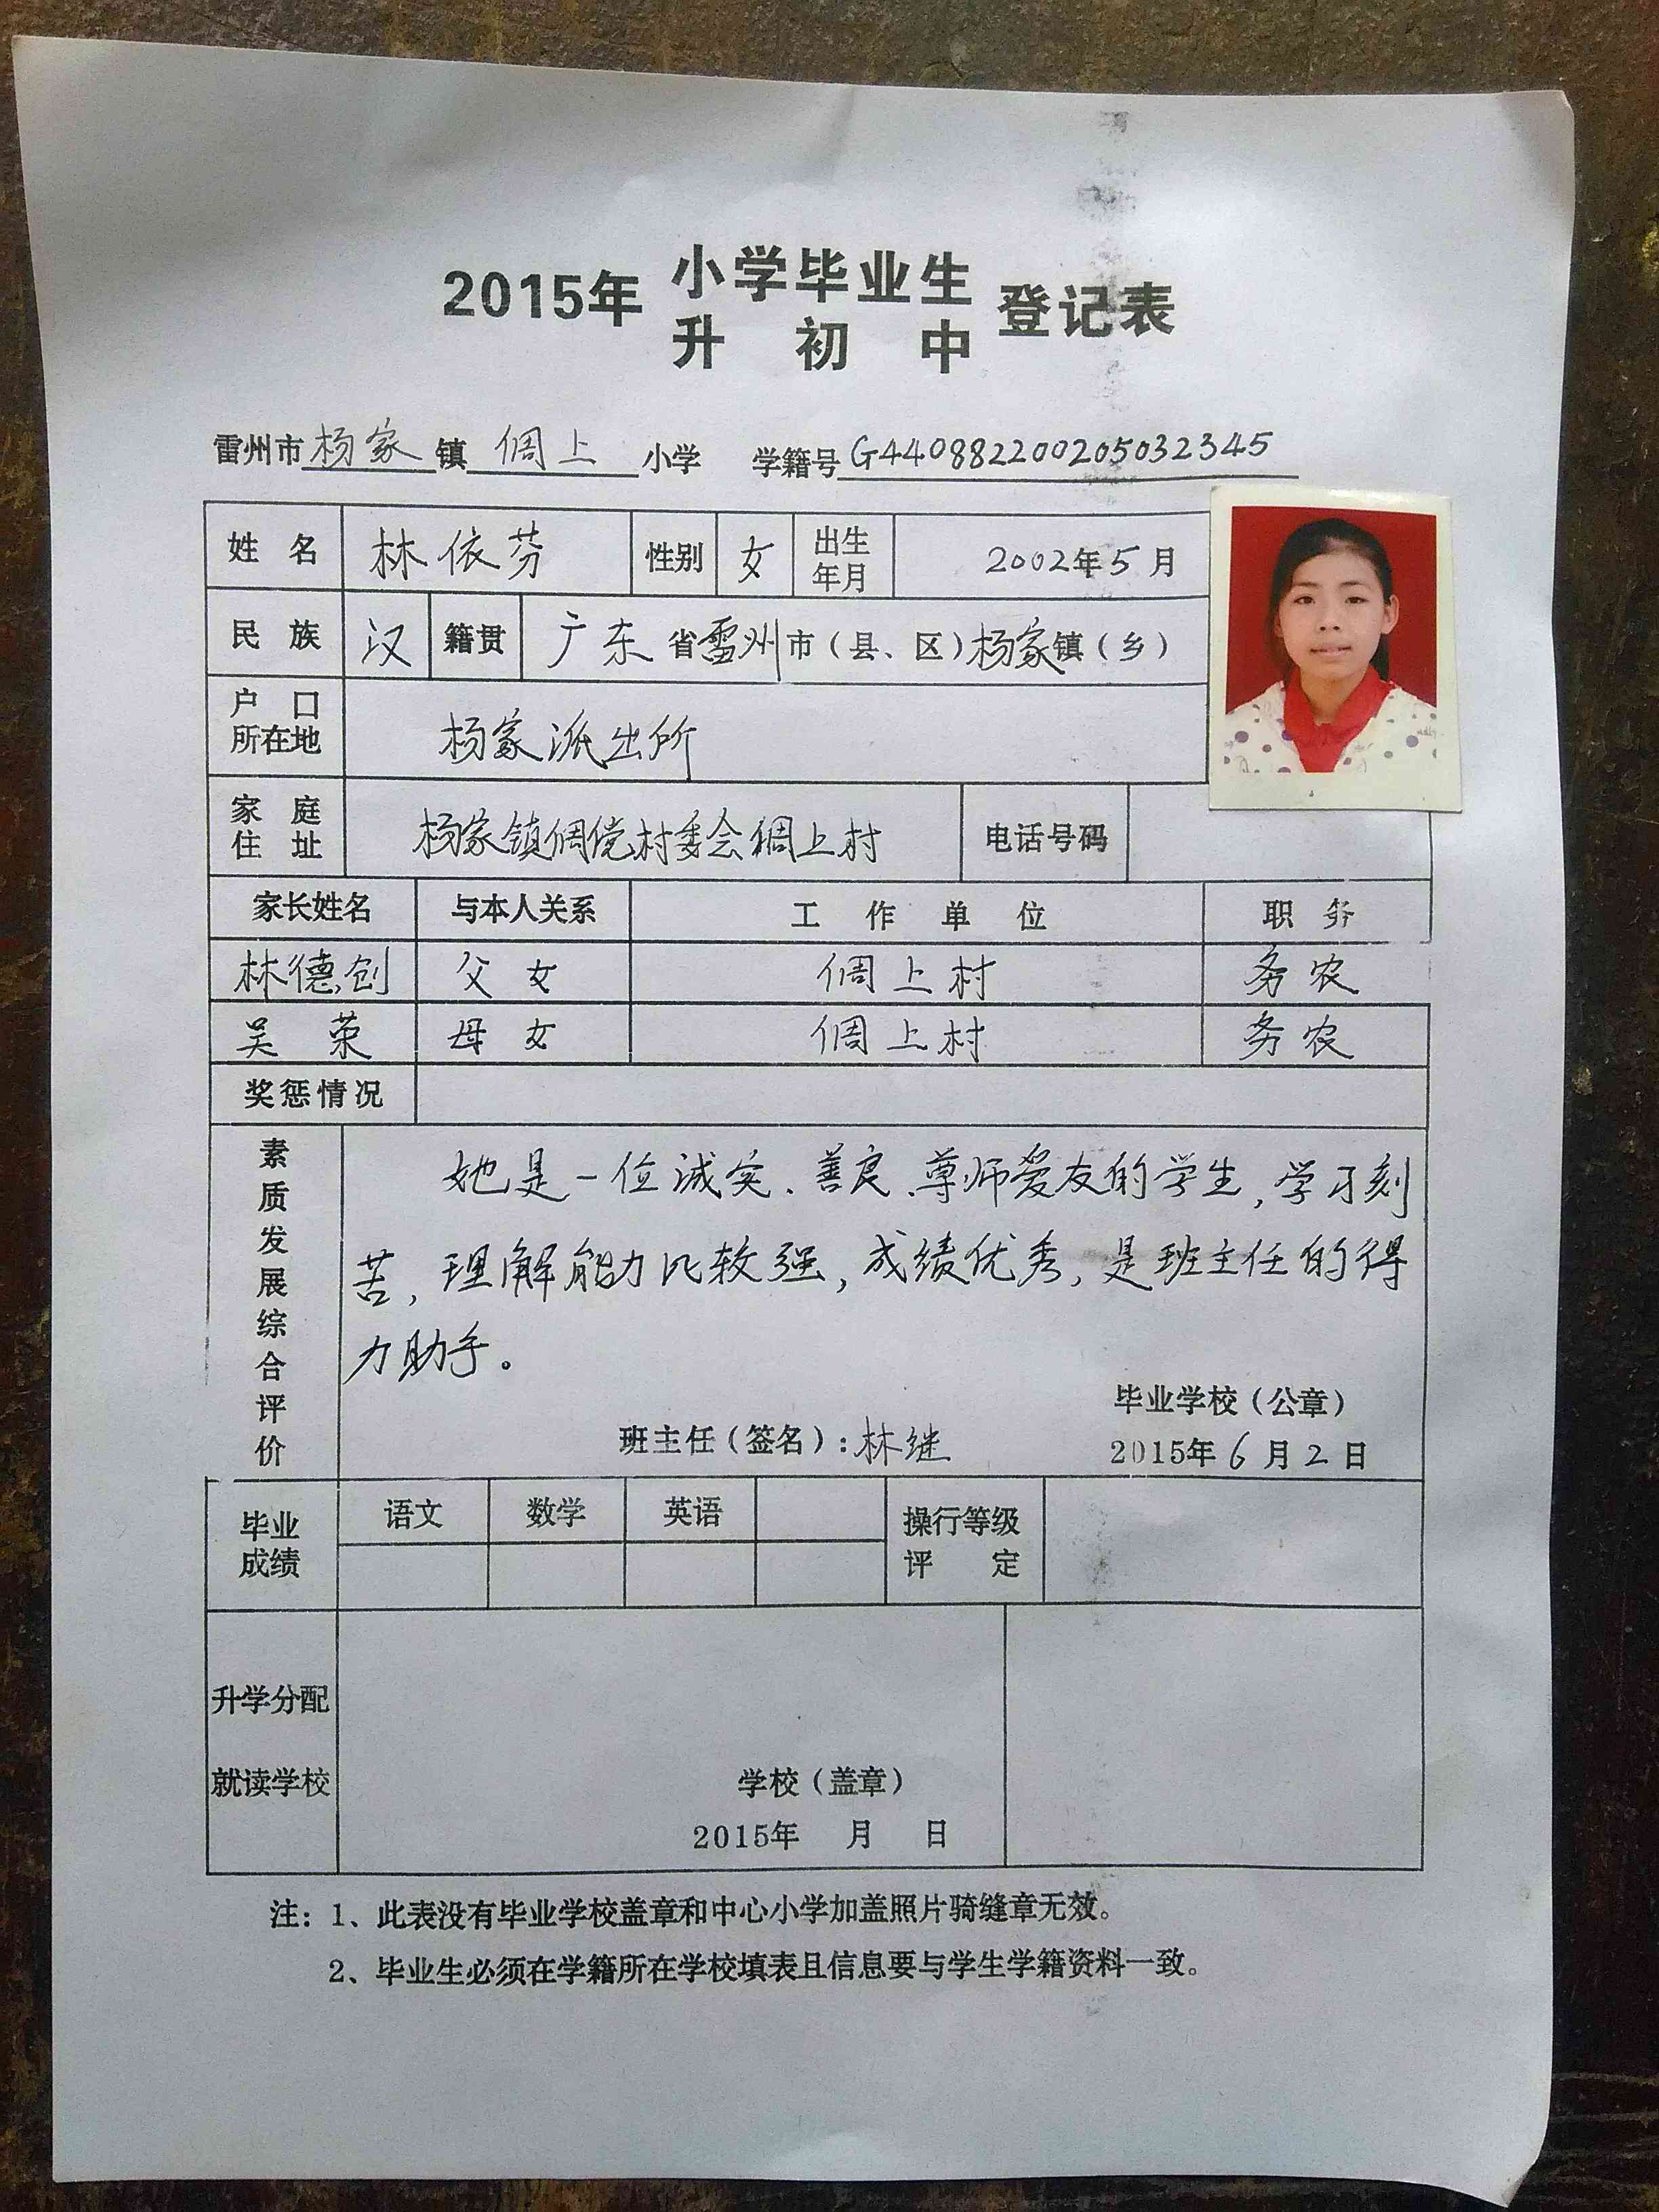 2015年 小学毕业生 登记表
升初中
雷州市杨家镇倜上小学 学籍号G440882200205032345
姓名 林依芬 性别 女 出生年月 2002年5月
民族 汉 籍贯 广东省雷州市（县、区）杨家镇（乡）
户口所在地 杨家派出所
家庭住址 杨家镇倜傥村委会稠上村 电话号码
家长姓名 与本人关系 工作单位 职务
林德创 父女 倜上村 务农
吴荣 母女 倜上村 务农
奖惩情况
素质发展综合评价
她是一位诚实、善良、尊师爱友的学生，学习刻
苦，理解能力比较强，成绩优秀，是班主任的得
力助手。
毕业学校（公章）
班主任（签名）：林继 2015年6月2日
毕业成绩 语文 数学 英语 操行等级评定
升学分配
就读学校 学校（盖章）
2015年 月 日
注：1、此表没有毕业学校盖章和中心小学加盖照片骑缝章无效。
2、毕业生必须在学籍所在学校填表且信息要与学生学籍资料一致。